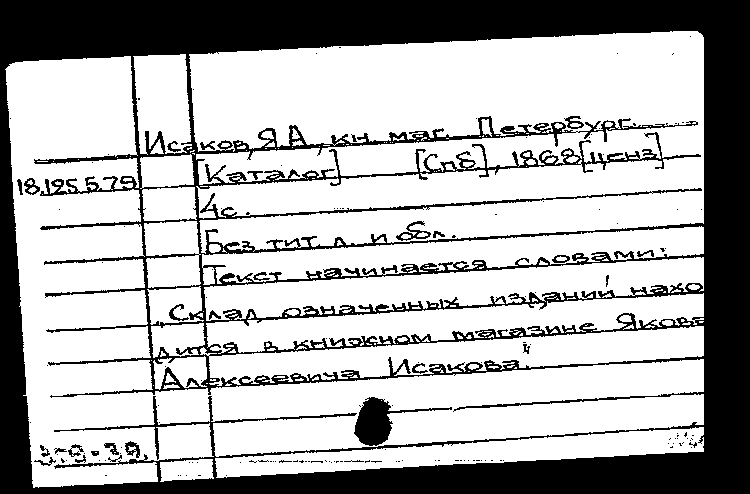 Исаков, Я А, кн. маг. Петербург.
[Каталог] [Спб], 1868 [ценз]
18.125.5.79
4с.
Без тит л. и обл.
Текст начинается словами:
„Склад означенных изданий нахо
дится в книжном магазине Якова
Алексеевича Исакова."